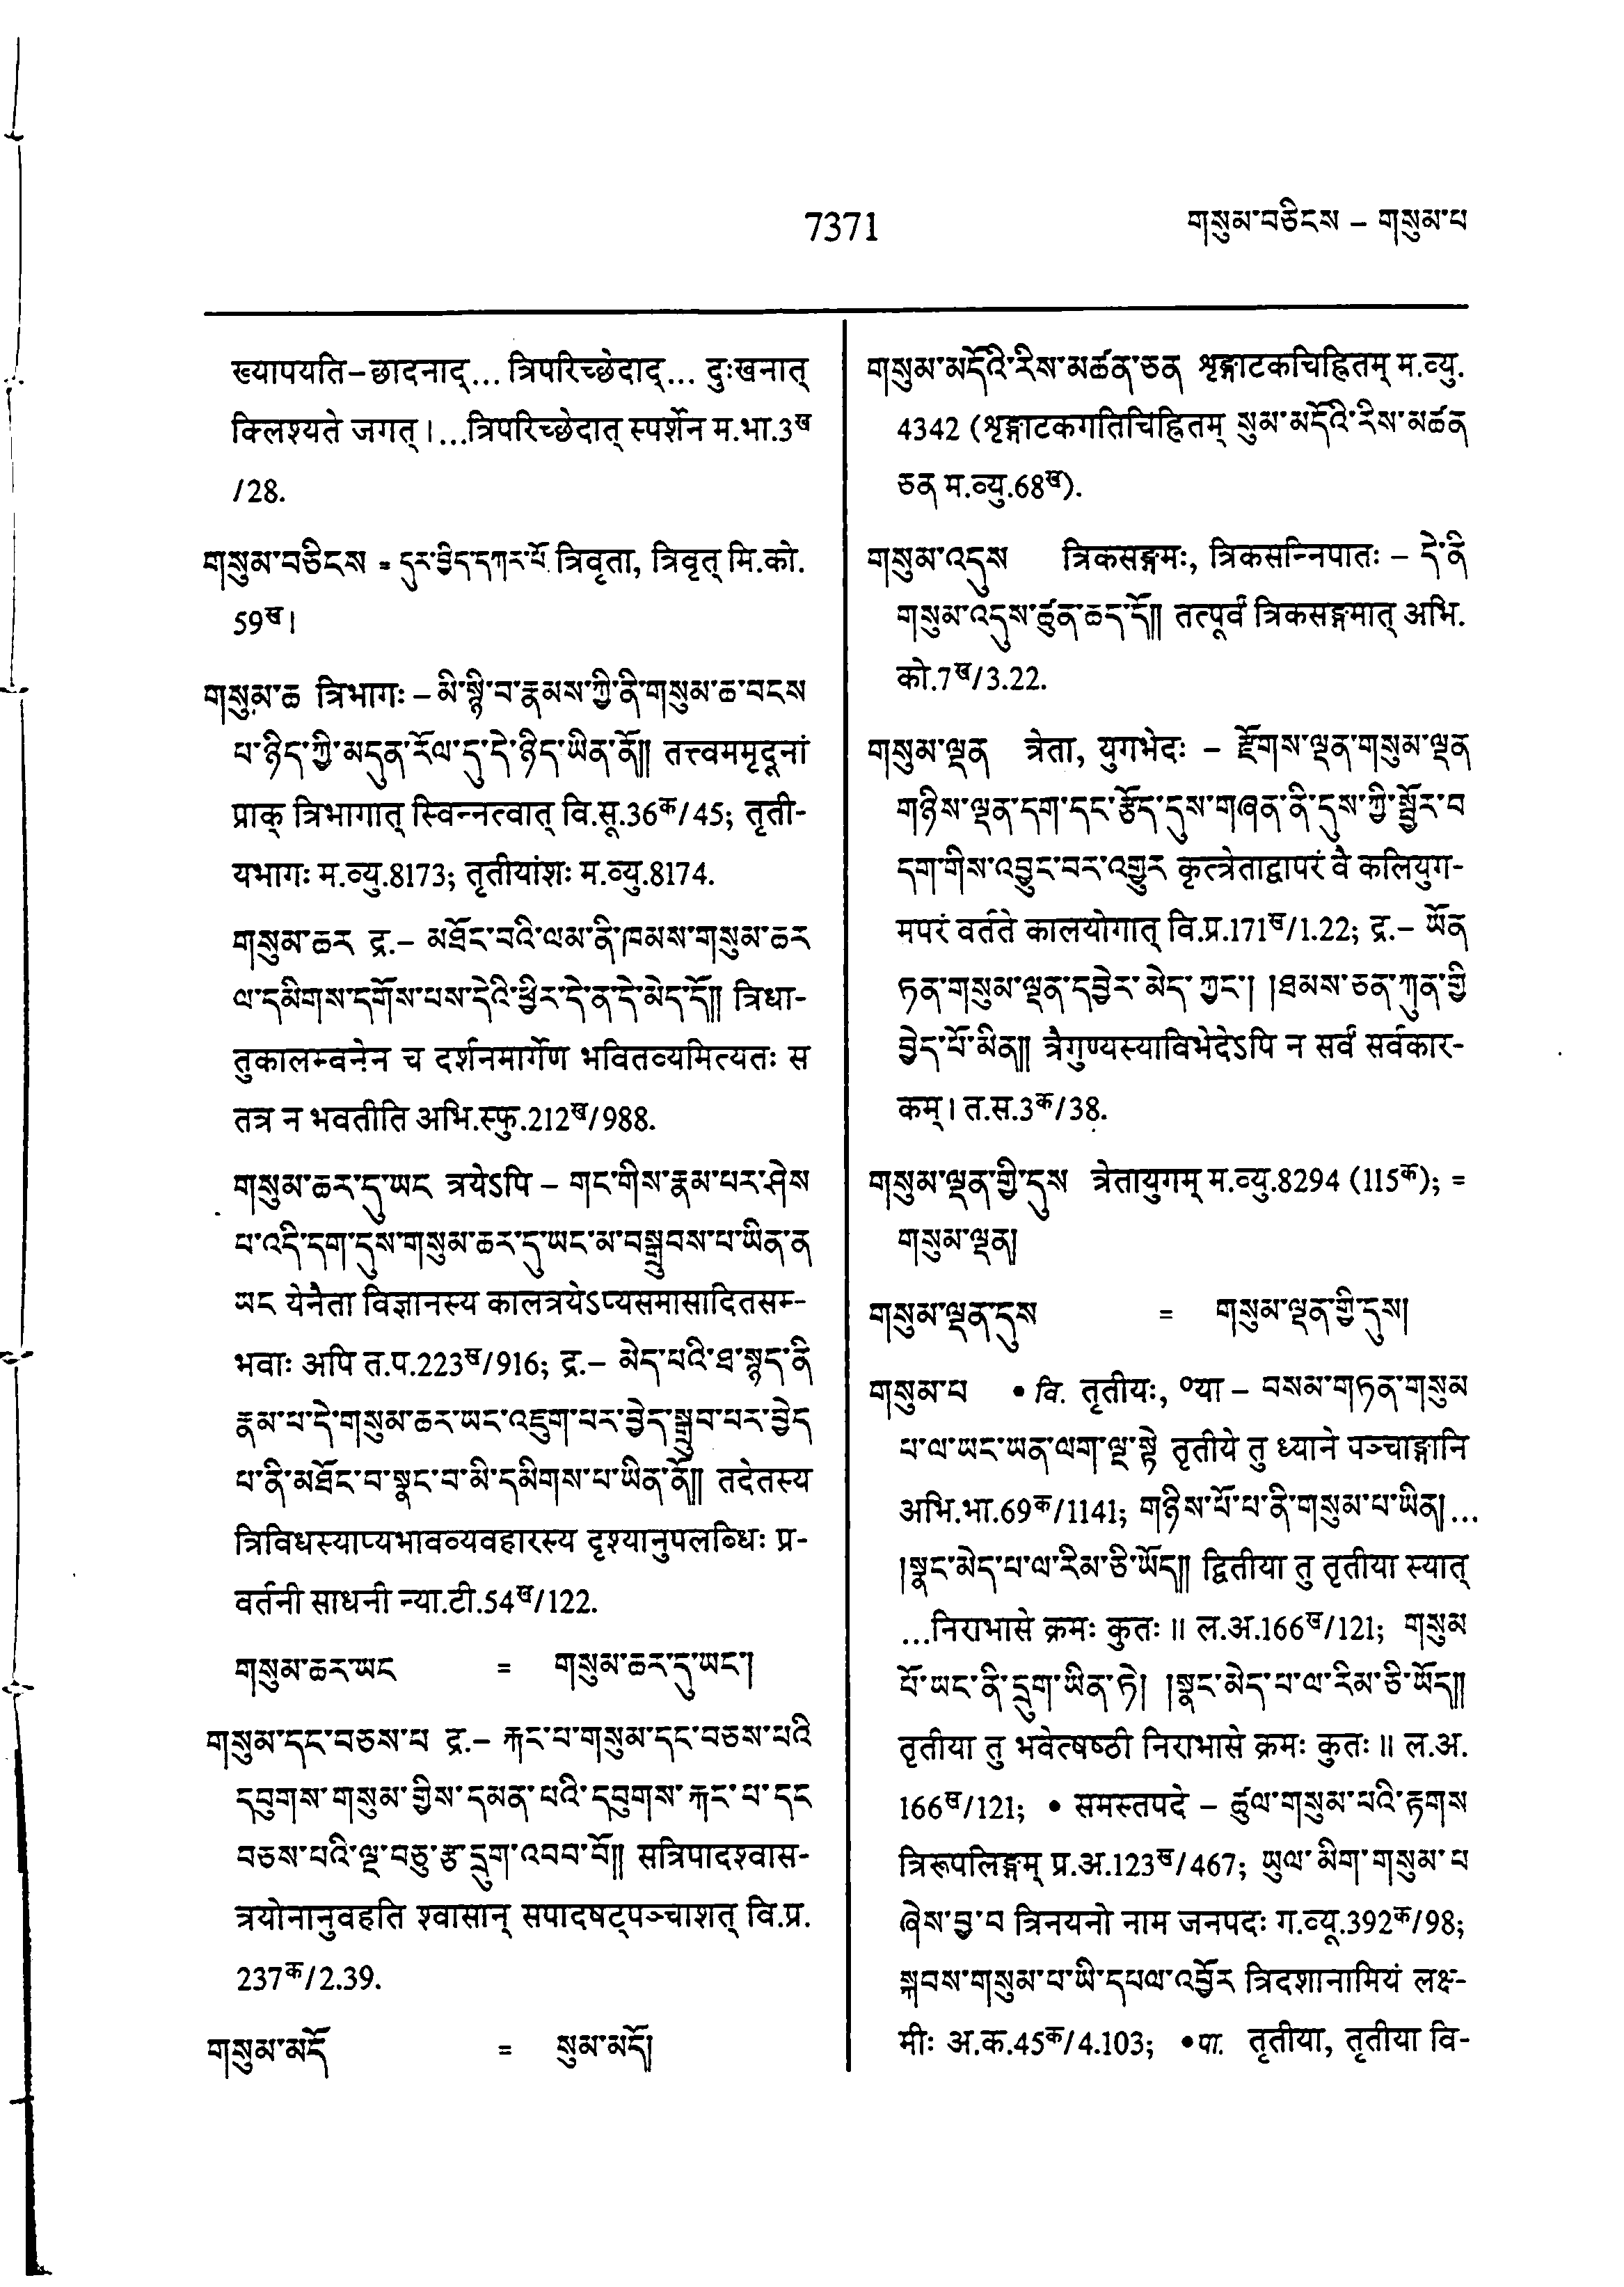 7371
གསུམ་བཅིངས – གསུམ་པ
ख्यापयति–छादनाद्... त्रिपरिच्छेदाद्... दुःखनात्
क्लिश्यते जगत्।...त्रिपरिच्छेदात् स्पर्शेन म.भा.3ख
/28.
གསུམ་བཅིངས = དུར་བྱིད་དཀར་པོ་ त्रिवृता, त्रिवृत् मि.को.
59ख।
གསུམ་ཆ त्रिभागः – མི་སྙི་བ་རྣམས་ཀྱི་ནི་གསུམ་ཆ་བངས
པ་ཉིད་ཀྱི་མདུན་རོལ་དུ་དེ་ཉིད་ཡིན་ནོ།། तत्त्वममृदूनां
प्राक् त्रिभागात् स्विन्नत्वात् वि.सू.36क/45; तृती-
यभागः म.व्यु.8173; तृतीयांशः म.व्यु.8174.
གསུམ་ཆར द्र.– མཐོང་བའི་ལམ་ནི་ཁམས་གསུམ་ཆར
ལ་དམིགས་དགོས་པས་དེའི་ཕྱིར་དེ་ན་དེ་མེད་དོ།། त्रिधा-
तुकालम्वनेन च दर्शनमार्गेण भवितव्यमित्यतः स
तत्र न भवतीति अभि.स्फु.212ख/988.
གསུམ་ཆར་དུ་ཡང त्रयेऽपि – གང་གིས་རྣམ་པར་ཤེས
པ་འདི་དག་དུས་གསུམ་ཆར་དུ་ཡང་མ་བསྒྲུབས་པ་ཡིན་ན
ཡང येनैता विज्ञानस्य कालत्रयेऽप्यसमासादितसम्-
भवाः अपि त.प.223ख/916; द्र.– མེད་པའི་ཐ་སྙད་ནི
རྣམ་པ་དེ་གསུམ་ཆར་ཡང་འཇུག་པར་བྱེད་སྒྲུབ་པར་བྱེད
པ་ནི་མཐོང་བ་སྣང་བ་མི་དམིགས་པ་ཡིན་ནོ།། तदेतस्य
त्रिविधस्याप्यभावव्यवहारस्य दृश्यानुपलब्धिः प्र-
वर्तनी साधनी न्या.टी.54ख/122.
གསུམ་ཆར་ཡང = གསུམ་ཆར་དུ་ཡང་།
གསུམ་དང་བཅས་པ द्र.– རྐང་པ་གསུམ་དང་བཅས་པའི
དབུགས་གསུམ་གྱིས་དམན་པའི་དབུགས་རྐང་པ་དང
བཅས་པའི་ལྔ་བཅུ་རྩ་དྲུག་འབབ་བོ།། सत्रिपादश्वास-
त्रयोनानुवहति श्वासान् सपादषट्पञ्चाशत् वि.प्र.
237क/2.39.
གསུམ་མདོ = སུམ་མདོ།
གསུམ་མདོའི་རིས་མཚན་ཅན शृङ्गाटकचिह्नितम् म.व्यु.
4342 (शृङ्गाटकगतिचिह्नितम् སུམ་མདོའི་རིས་མཚན
ཅན म.व्यु.68ख).
གསུམ་འདུས त्रिकसङ्गमः, त्रिकसन्निपातः – དེ་ནི
གསུམ་འདུས་ཚུན་ཆད་དོ།། तत्पूर्वं त्रिकसङ्गमात् अभि.
को.7ख/3.22.
གསུམ་ལྡན त्रेता, युगभेदः – རྫོགས་ལྡན་གསུམ་ལྡན
གཉིས་ལྡན་དག་དང་རྩོད་དུས་གཞན་ནི་དུས་ཀྱི་སྦྱོར་བ
དག་གིས་འབྱུང་བར་འགྱུར कृत्त्रेताद्वापरं वै कलियुग-
मपरं वर्तते कालयोगात् वि.प्र.171ख/1.22; द्र.– ཡོན
ཏན་གསུམ་ལྡན་དབྱེར་མེད་ཀྱང་། །ཐམས་ཅན་ཀུན་གྱི
བྱེད་པོ་མིན།། त्रैगुण्यस्याविभेदेऽपि न सर्वं सर्वकार-
कम्। त.स.3क/38.
གསུམ་ལྡན་གྱི་དུས त्रेतायुगम् म.व्यु.8294 (115क); =
གསུམ་ལྡན།
གསུམ་ལྡན་དུས = གསུམ་ལྡན་གྱི་དུས།
གསུམ་པ • वि. तृतीयः, ०या – བསམ་གཏན་གསུམ
པ་ལ་ཡང་ཡན་ལག་ལྔ་སྟེ तृतीये तु ध्याने पञ्चाङ्गानि
अभि.भा.69क/1141; གཉིས་པོ་པ་ནི་གསུམ་པ་ཡིན།...
།སྣང་མེད་པ་ལ་རིམ་ཅི་ཡོད།། द्वितीया तु तृतीया स्यात्
...निराभासे क्रमः कुतः॥ ल.अ.166ख/121; གསུམ
པོ་ཡང་ནི་དྲུག་ཡིན་ཏེ། །སྣང་མེད་པ་ལ་རིམ་ཅི་ཡོད།།
तृतीया तु भवेत्षष्ठी निराभासे क्रमः कुतः॥ ल.अ.
166ख/121; • समस्तपदे – ཚུལ་གསུམ་པའི་རྟགས
त्रिरूपलिङ्गम् प्र.अ.123ख/467; ཡུལ་མིག་གསུམ་པ
ཞེས་བྱ་བ त्रिनयनो नाम जनपदः ग.व्यू.392क/98;
སྐབས་གསུམ་པ་ཡི་དཔལ་འབྱོར त्रिदशानामियं लक्ष्-
मीः अ.क.45क/4.103; • पा. तृतीया, तृतीया वि-